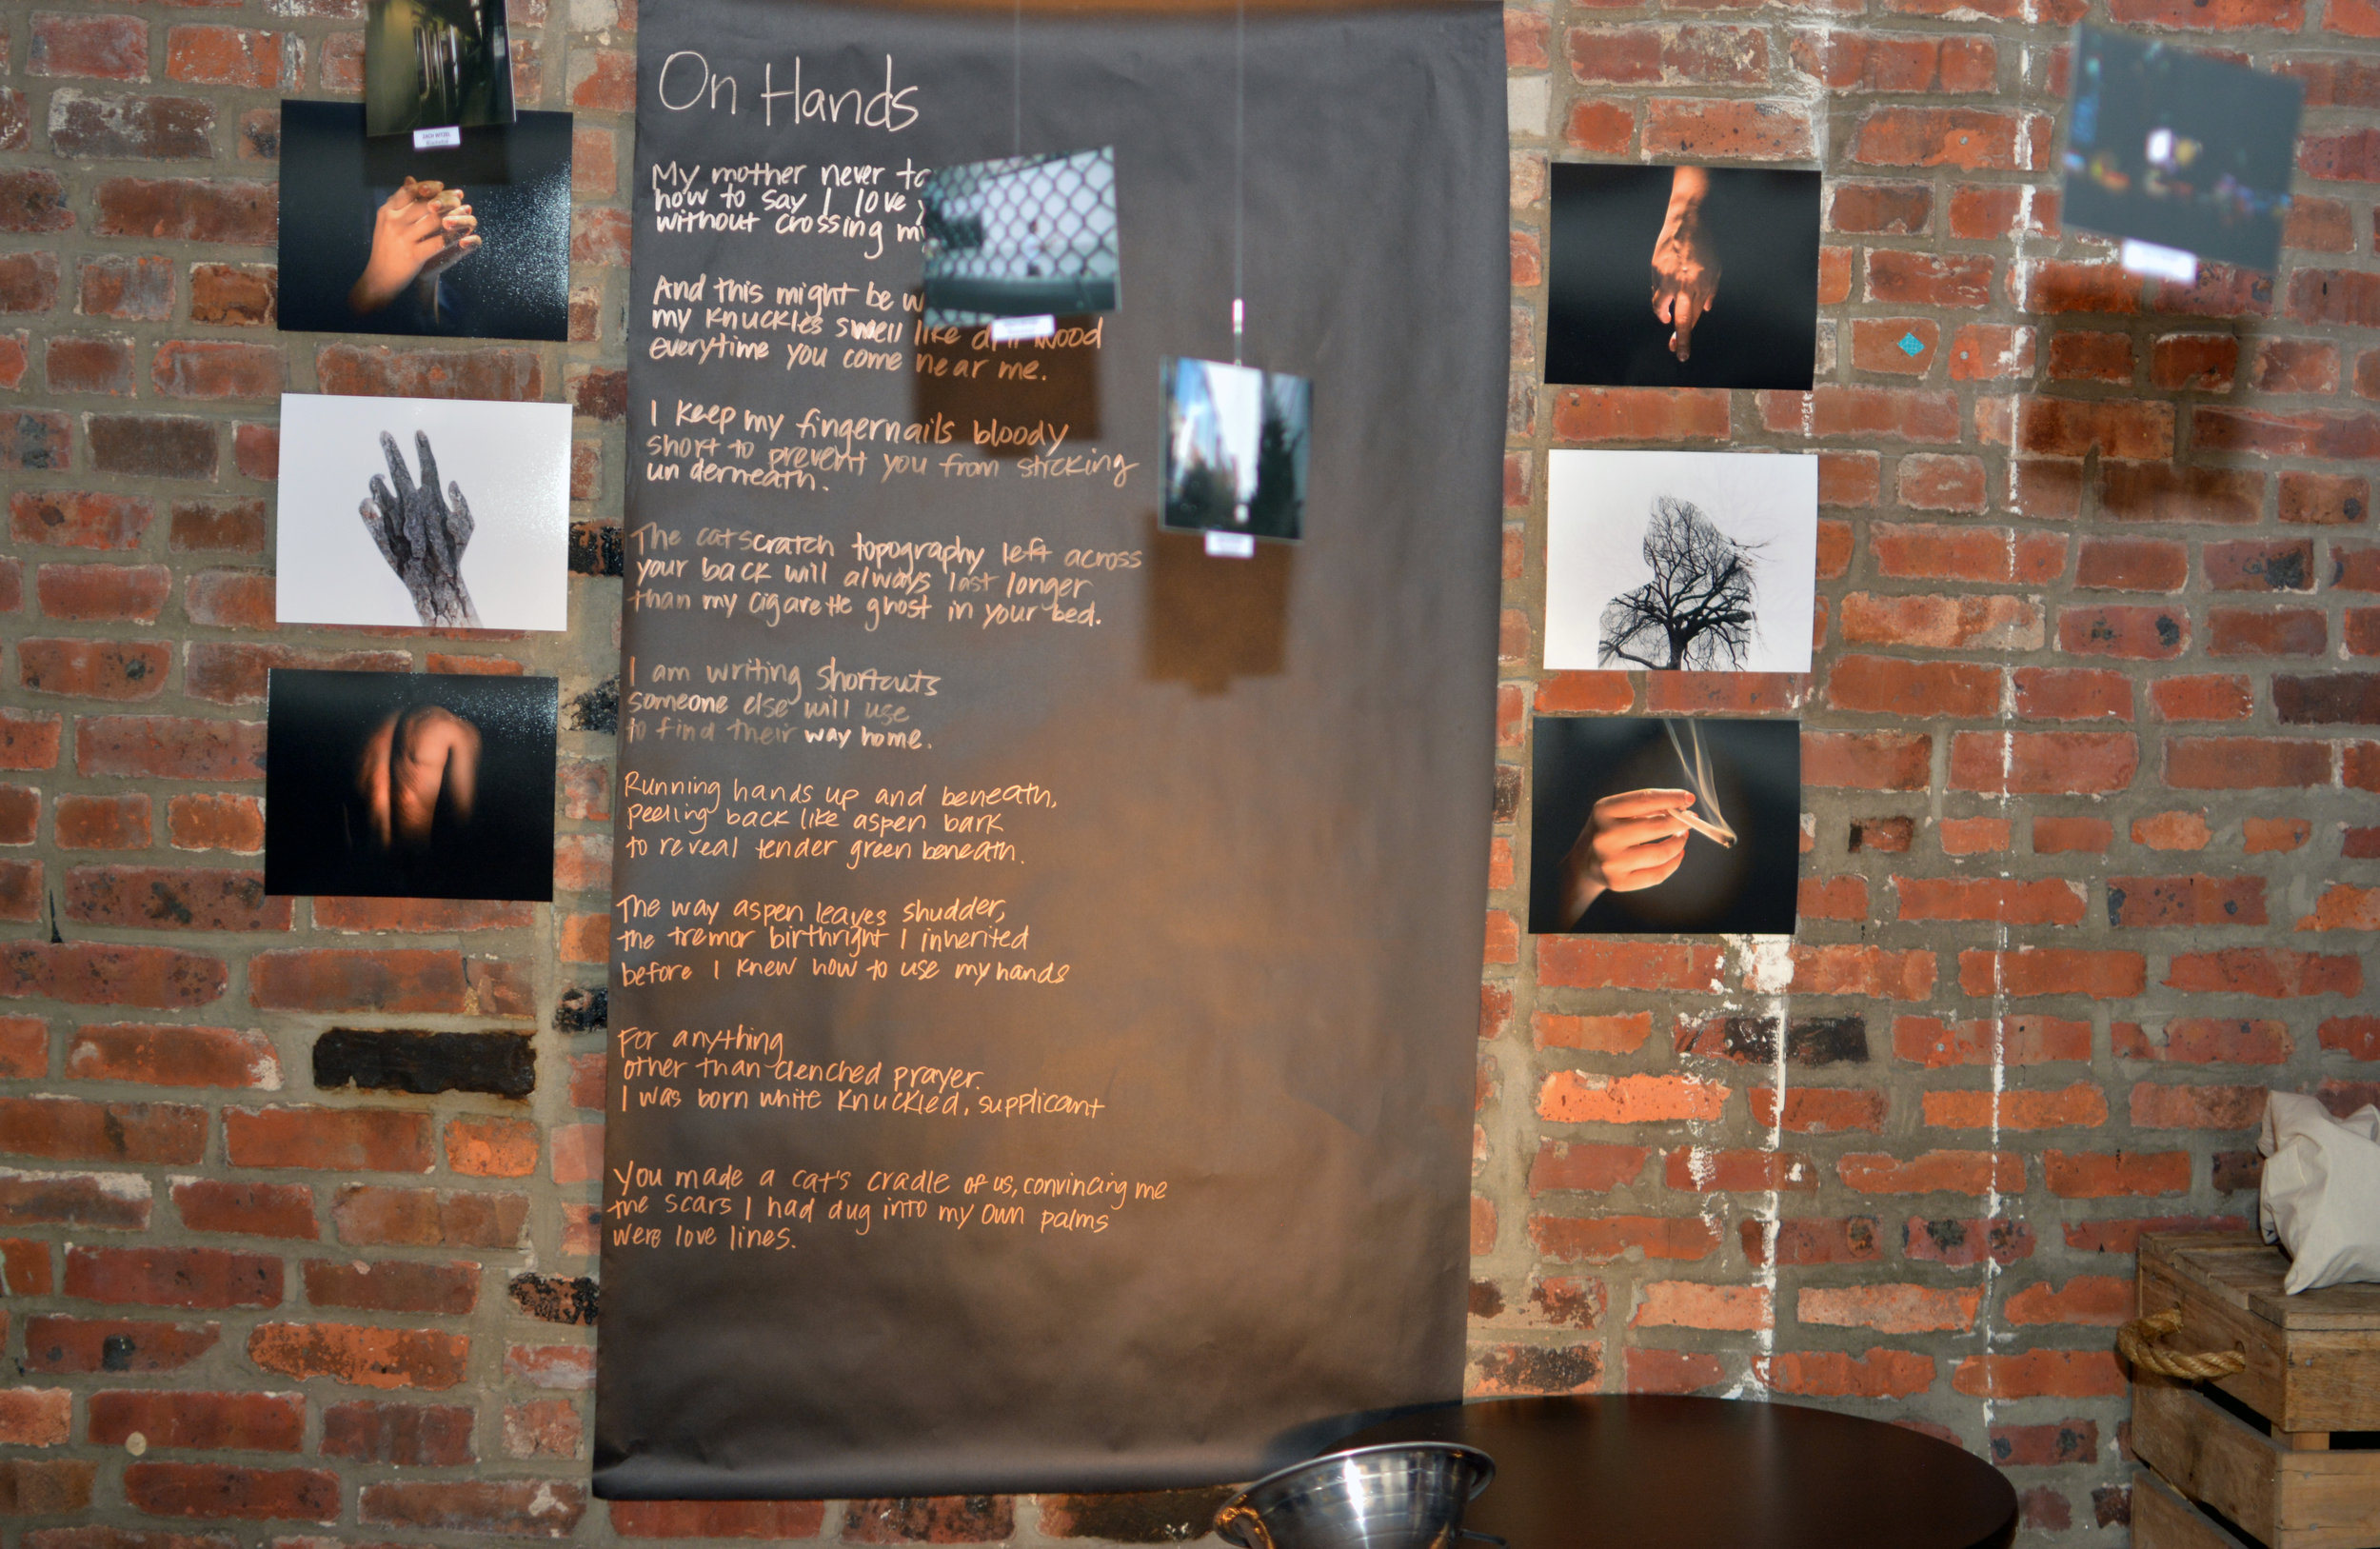 On Hands
My mother never
how to say I love
without crossing
And this might be
my knuckles swell like
everytime you come near me.
I keep my fingernails bloody
short to prevent you from sticking
un derneath.
The catscratch topography left across
your back will always last longer
than my cigarette ghost in your bed.
I am writing shortcuts
someone else will use
to find their way home.
Running hands up and beneath,
peeling back like aspen bark
to reveal tender green beneath.
The way aspen leaves shudder,
the tremor birthright I inherited
before I knew how to use my hands
For anything
other than clenched prayer.
I was born white knuckled, supplicant
You made a cat's cradle of us, convincing me
the scars I had dug into my own palms
were love lines.